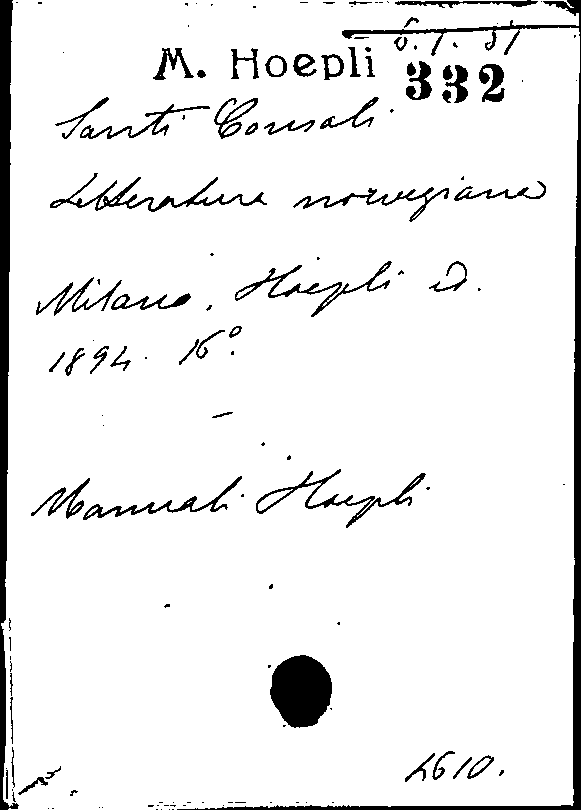 6. 1. 51
M. Hoepli
332
Santi Consoli
Letteratura norvegiana
Milano, Hoepli ed.
1894. 16°.
Manuali Hoepli
4610.